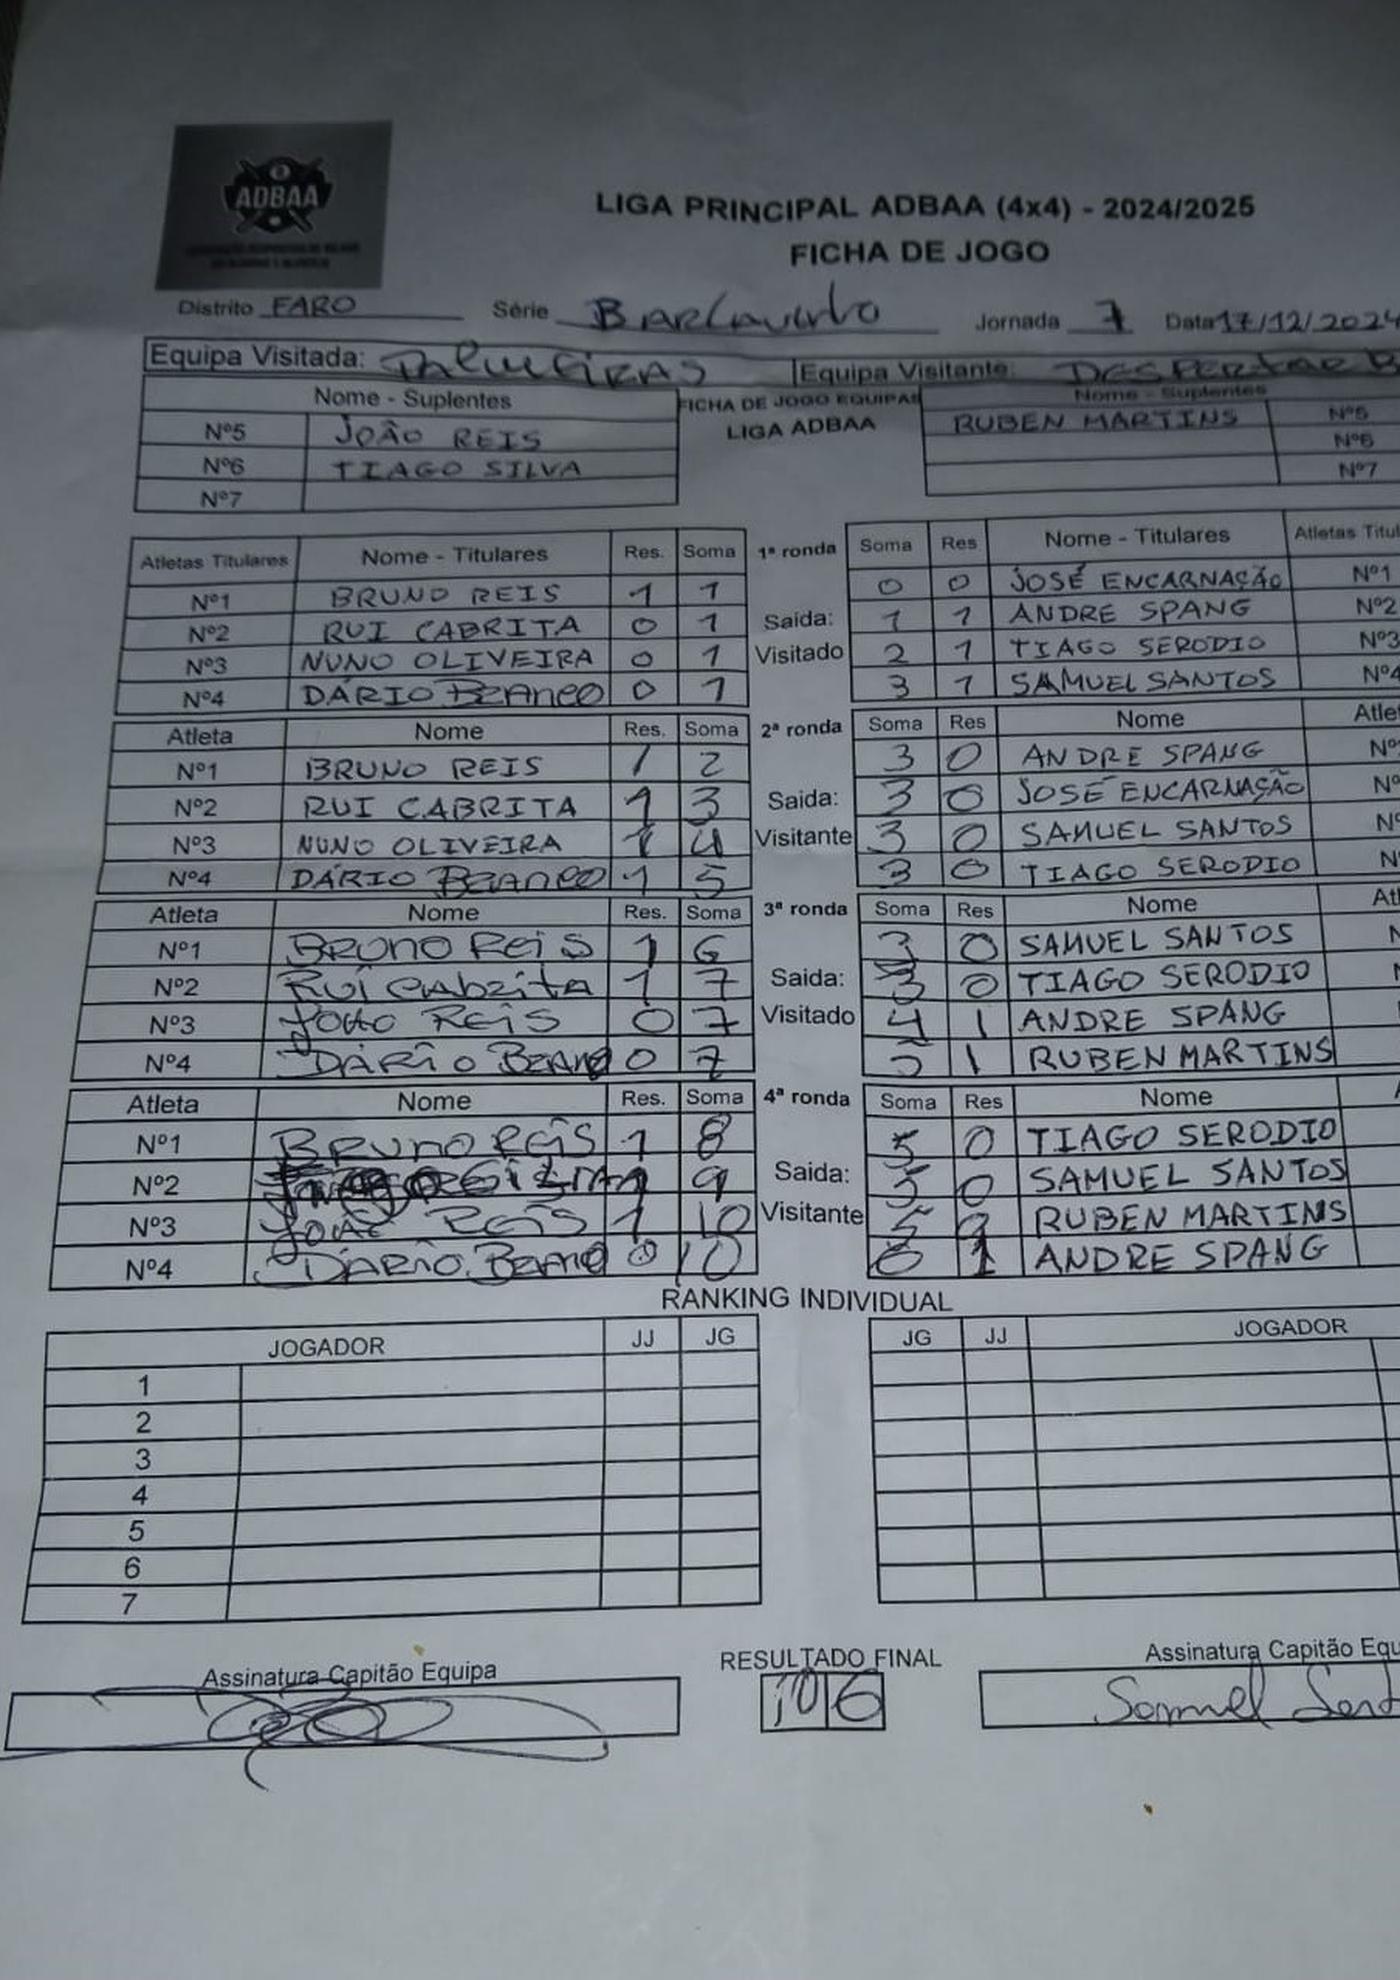 ADBAA
LIGA PRINCIPAL ADBAA (4x4) - 2024/2025
FICHA DE JOGO
Distrito FARO Série Barlavento Jornada 7 Data 17/12/2024
Equipa Visitada: PALMEIRAS Equipa Visitante: DESPERTAR B
Nome - Suplentes FICHA DE JOGO EQUIPAS Nome - Suplentes
Nº5 JOÃO REIS LIGA ADBAA RUBEN MARTINS Nº5
Nº6 TIAGO SILVA Nº6
Nº7 Nº7
Atletas Titulares Nome - Titulares Res. Soma 1ª ronda Soma Res Nome - Titulares Atletas Titul
Nº1 BRUNO REIS 1 1 0 0 JOSÉ ENCARNAÇÃO Nº1
Nº2 RUI CABRITA 0 1 Saída: 1 1 ANDRE SPANG Nº2
Nº3 NUNO OLIVEIRA 0 1 Visitado 2 1 TIAGO SERODIO Nº3
Nº4 DÁRIO Branco 0 1 3 1 SAMUEL SANTOS Nº4
Atleta Nome Res. Soma 2ª ronda Soma Res Nome Atle
Nº1 BRUNO REIS 1 2 3 0 ANDRE SPANG Nº
Nº2 RUI CABRITA 1 3 Saida: 3 0 JOSÉ ENCARNAÇÃO Nº
Nº3 NUNO OLIVEIRA 1 4 Visitante 3 0 SAMUEL SANTOS Nº
Nº4 DÁRIO Branco 1 5 3 0 TIAGO SERODIO N
Atleta Nome Res. Soma 3ª ronda Soma Res Nome Atl
Nº1 Bruno Reis 1 6 3 0 SAMUEL SANTOS N
Nº2 Rui Cabrita 1 7 Saida: 3 0 TIAGO SERODIO N
Nº3 João Reis 0 7 Visitado 4 1 ANDRE SPANG
Nº4 DÁRIO Branco 0 7 5 1 RUBEN MARTINS
Atleta Nome Res. Soma 4ª ronda Soma Res Nome
Nº1 Bruno Reis 1 8 5 0 TIAGO SERODIO
Nº2 1 9 Saida: 5 0 SAMUEL SANTOS
Nº3 João Reis 1 10 Visitante 5 RUBEN MARTINS
Nº4 DÁRIO Branco 0 10 6 1 ANDRE SPANG
RANKING INDIVIDUAL
JOGADOR JJ JG JG JJ JOGADOR
1
2
3
4
5
6
7
Assinatura Capitão Equipa RESULTADO FINAL Assinatura Capitão Equ
10 6 Samuel Sant